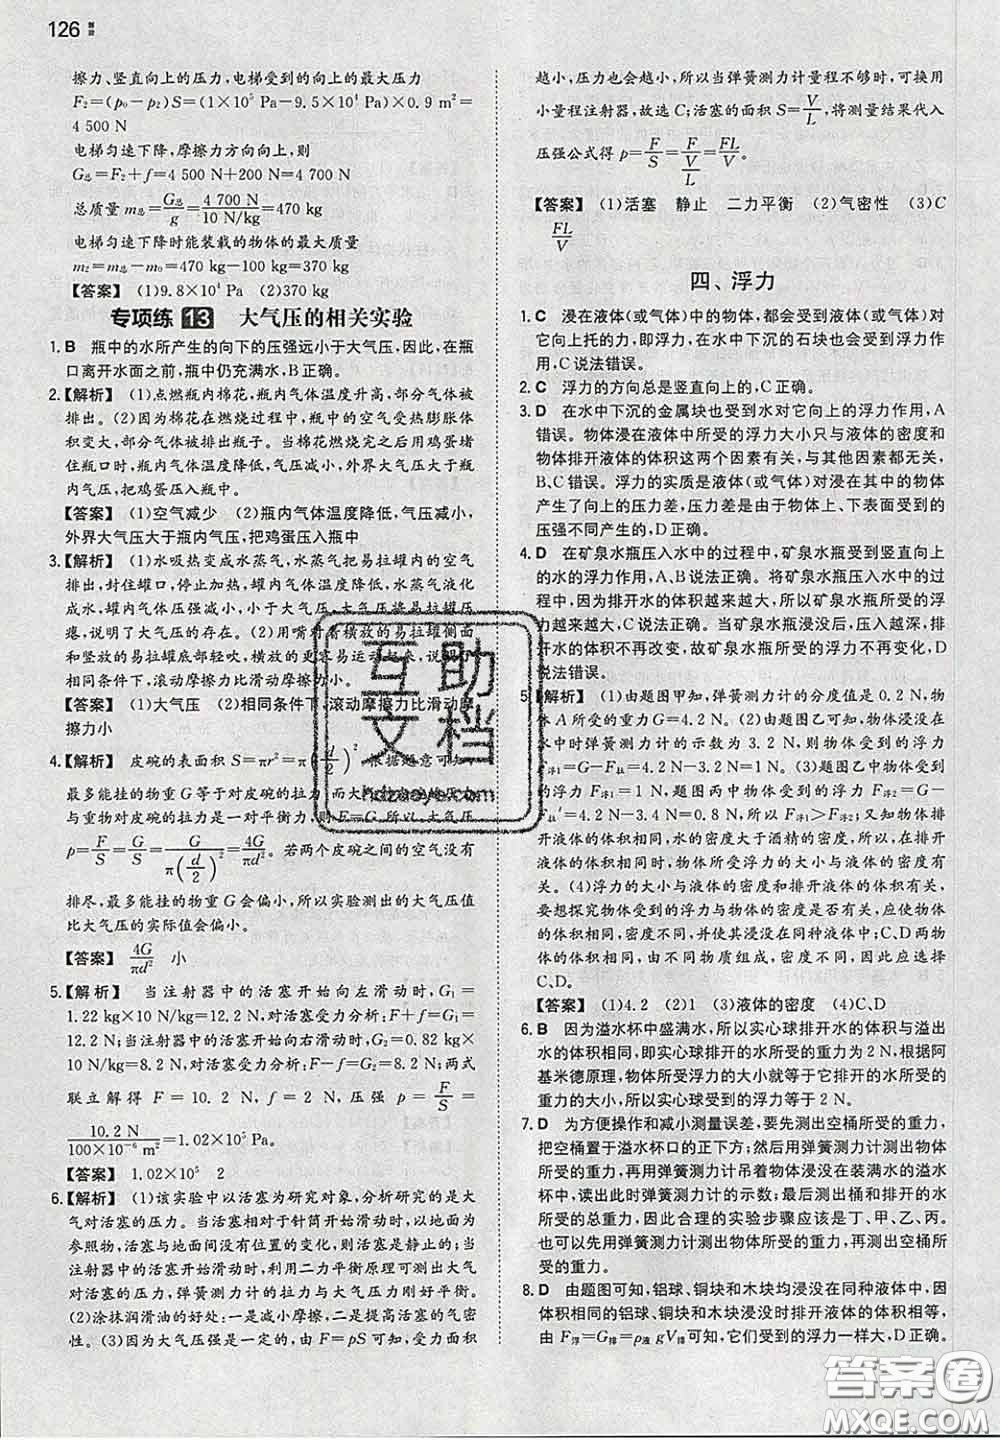 126
擦力、竖直向上的压力,电梯受到的向上的最大压力
F₂=(p₀-p₂)S=(1×10⁵ Pa-9.5×10⁴ Pa)×0.9 m²=
4 500 N
电梯匀速下降,摩擦力方向向上,则
G总=F₂+f=4 500 N+200 N=4 700 N
总质量 m总=G总/g=4 700 N/10 N/kg=470 kg
电梯匀速下降时能装载的物体的最大质量
m₂=m总-m₀=470 kg-100 kg=370 kg
【答案】 (1)9.8×10⁴ Pa (2)370 kg
专项练 13 大气压的相关实验
1. B 瓶中的水所产生的向下的压强远小于大气压,因此,在瓶
口离开水面之前,瓶中仍充满水,B正确。
2.【解析】 (1)点燃瓶内棉花,瓶内气体温度升高,部分气体被
排出。(2)因为棉花在燃烧过程中,瓶中的空气受热膨胀体
积变大,部分气体被排出瓶子。当棉花燃烧完之后用鸡蛋堵
住瓶口时,瓶内气体温度降低,气压减小,外界大气压大于瓶
内气压,把鸡蛋压入瓶中。
【答案】 (1)空气减少 (2)瓶内气体温度降低,气压减小,
外界大气压大于瓶内气压,把鸡蛋压入瓶中
3.【解析】 (1)水吸热变成水蒸气,水蒸气把易拉罐内的空气
排出,封住罐口,停止加热,罐内气体温度降低,水蒸气液化
成水,罐内气压减小,小于大气压,大气压将易拉罐压
瘪,说明了大气压的存在。(2)用嘴对着横放的易拉罐侧面
和竖放的易拉罐底部轻吹,横放的更容易运动起来,说明了
相同条件下,滚动摩擦力比滑动摩擦力小。
【答案】 (1)大气压 (2)相同条件下,滚动摩擦力比滑动摩
擦力小
4.【解析】 皮碗的表面积 S=πr²=π(d/2)² 根据题意可知,
最多能挂的物重G等于对皮碗的拉力,而大气压
与重物对皮碗的拉力是一对平衡力,即F=G,所以,大气压
p=F/S=G/S=G/π(d/2)²=4G/πd²。若两个皮碗之间的空气没有
排尽,最多能挂的物重G会偏小,所以实验测出的大气压值
比大气压的实际值会偏小。
【答案】 4G/πd² 小
5.【解析】 当注射器中的活塞开始向左滑动时,G₁=
1.22 kg×10 N/kg=12.2 N,对活塞受力分析:F+f=G₁=
12.2 N;当注射器中的活塞开始向右滑动时,G₂=0.82 kg×
10 N/kg=8.2 N,对活塞受力分析:F-f=G₂=8.2 N;两式
联立解得 F=10.2 N, 压强 p=F/S=
10.2 N/100×10⁻⁶ m²=1.02×10⁵ Pa。
【答案】 1.02×10⁵ 2
6.【解析】 (1)该实验中以活塞为研究对象,分析研究的是大
气对活塞的压力。当活塞相对于针筒开始滑动时,以地面为
参照物,活塞与地面间没有位置的变化,则活塞是静止的;当
活塞刚开始被拉动时,活塞处于静止状态,利用二力平衡原理可得大气压对
活塞的压力,弹簧测力计的拉力与活塞受到的大气压力刚好平衡。
(2)涂抹润滑油的好处:一是减小摩擦,二是提高活塞的气密
性。(3)因为大气压强是一定的,由F=pS可知,受力面积
越小,压力也会越小,所以当弹簧测力计量程不够时,可换用
小量程注射器,故选C;活塞的面积S=V/L,将测量结果代入
压强公式得 p=F/S=F/(V/L)=FL/V。
【答案】 (1)活塞 静止 二力平衡 (2)气密性 (3)C
FL/V
四、浮力
1. C 浸在液体(或气体)中的物体,都会受到液体(或气体)对
它向上托的力,即浮力,在水中下沉的石块也受到浮力作
用,C说法错误。
2. C 浮力的方向总是竖直向上的,C正确。
3. D 在水中下沉的金属块也受到水对它向上的浮力作用,A
错误。物体浸在液体中所受的浮力大小只与液体的密度和
物体排开液体的体积这两个因素有关,与其他因素都无关,
B、C错误。浮力的实质是液体(或气体)对浸在其中的物体
产生了向上的压力差,压力差是由于物体上、下表面受到的
压强不同产生的,D正确。
4. D 在矿泉水瓶压入水中的过程中,矿泉水瓶受到竖直向上
的水的浮力作用,A、B说法正确。将矿泉水瓶压入水中的过
程中,因为排开水的体积越来越大,所以矿泉水瓶所受的浮
力越来越大,C说法正确。当矿泉水瓶浸没后,压入越深,排
开水的体积不再改变,故矿泉水瓶所受的浮力不再变化,D
说法错误。
5.【解析】 (1)由题图甲知,弹簧测力计的分度值是0.2 N,物
体A所受的重力G=4.2 N。(2)由题图乙可知,物体浸没在
水中时弹簧测力计的示数为3.2 N,则物体受到的浮力
F浮1=G-F拉=4.2 N-3.2 N=1 N。(3)题图乙中物体受到
的浮力F浮1=1 N,题图丙中物体受到的浮力F浮2=G-
F拉′=4.2 N-3.4 N=0.8 N,所以F浮1>F浮2;又知物体排
开液体的体积相同,水的密度大于酒精的密度,由
此可得结论:物体所受浮力的大小与液体的密度有
关。(4)浮力的大小与液体的密度和排开液体的体积有关,
要想探究物体受到的浮力与物体的密度是否有关,应使物体
的体积相同,物体受到的重力不同,浸没在同种液体中,C、D
的体积相同,由不同物质组成,密度不同,因此可以选择
C、D。
【答案】 (1)4.2 (2)1 (3)液体的密度 (4)C、D
6. B 因为溢水杯中盛满水,所以实心球排开水的体积与溢出
水的体积相同,即实心球排开的水所受的重力为2 N。根据阿
基米德原理,物体所受浮力的大小就等于它排开的水所受的
重力大小,所以实心球受到的浮力等于2 N。
7. D 为方便操作和减小测量误差,要先测出空桶所受的重力,
把空桶置于溢水杯口的正下方;然后用弹簧测力计测出物体
所受的重力,再用弹簧测力计吊着物体浸没在装满水的溢水
杯中,读出此时弹簧测力计的示数;最后测出桶和排开的水
所受的总重力,因此合理的实验步骤应该是丁、甲、乙、丙。
也可以先用弹簧测力计测出物体所受的重力,再测出空桶所
受的重力。
8. D 由题图可知,铝球、铜块和木块均浸没在同种液体中,因
体积相同的铝球、铜块和木块浸没时排开液体的体积相等,
由 F浮=G排=ρ液gV排可知,它们受到的浮力一样大,D正确。
互助
文档
hdzuoye.com
答案圈
MXQE.COM